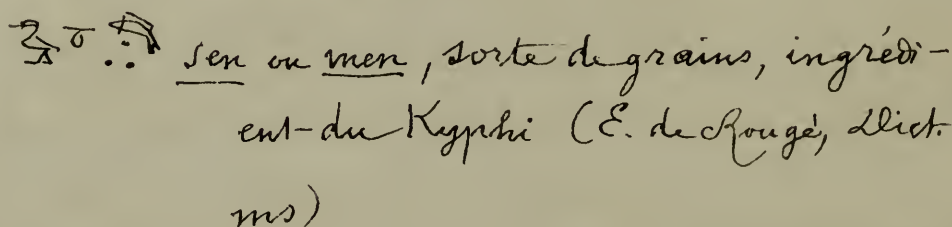 sen ou men, sorte de grains, ingrédi-
ent du Kyphi (E. de Rougé, Dict.
ms)